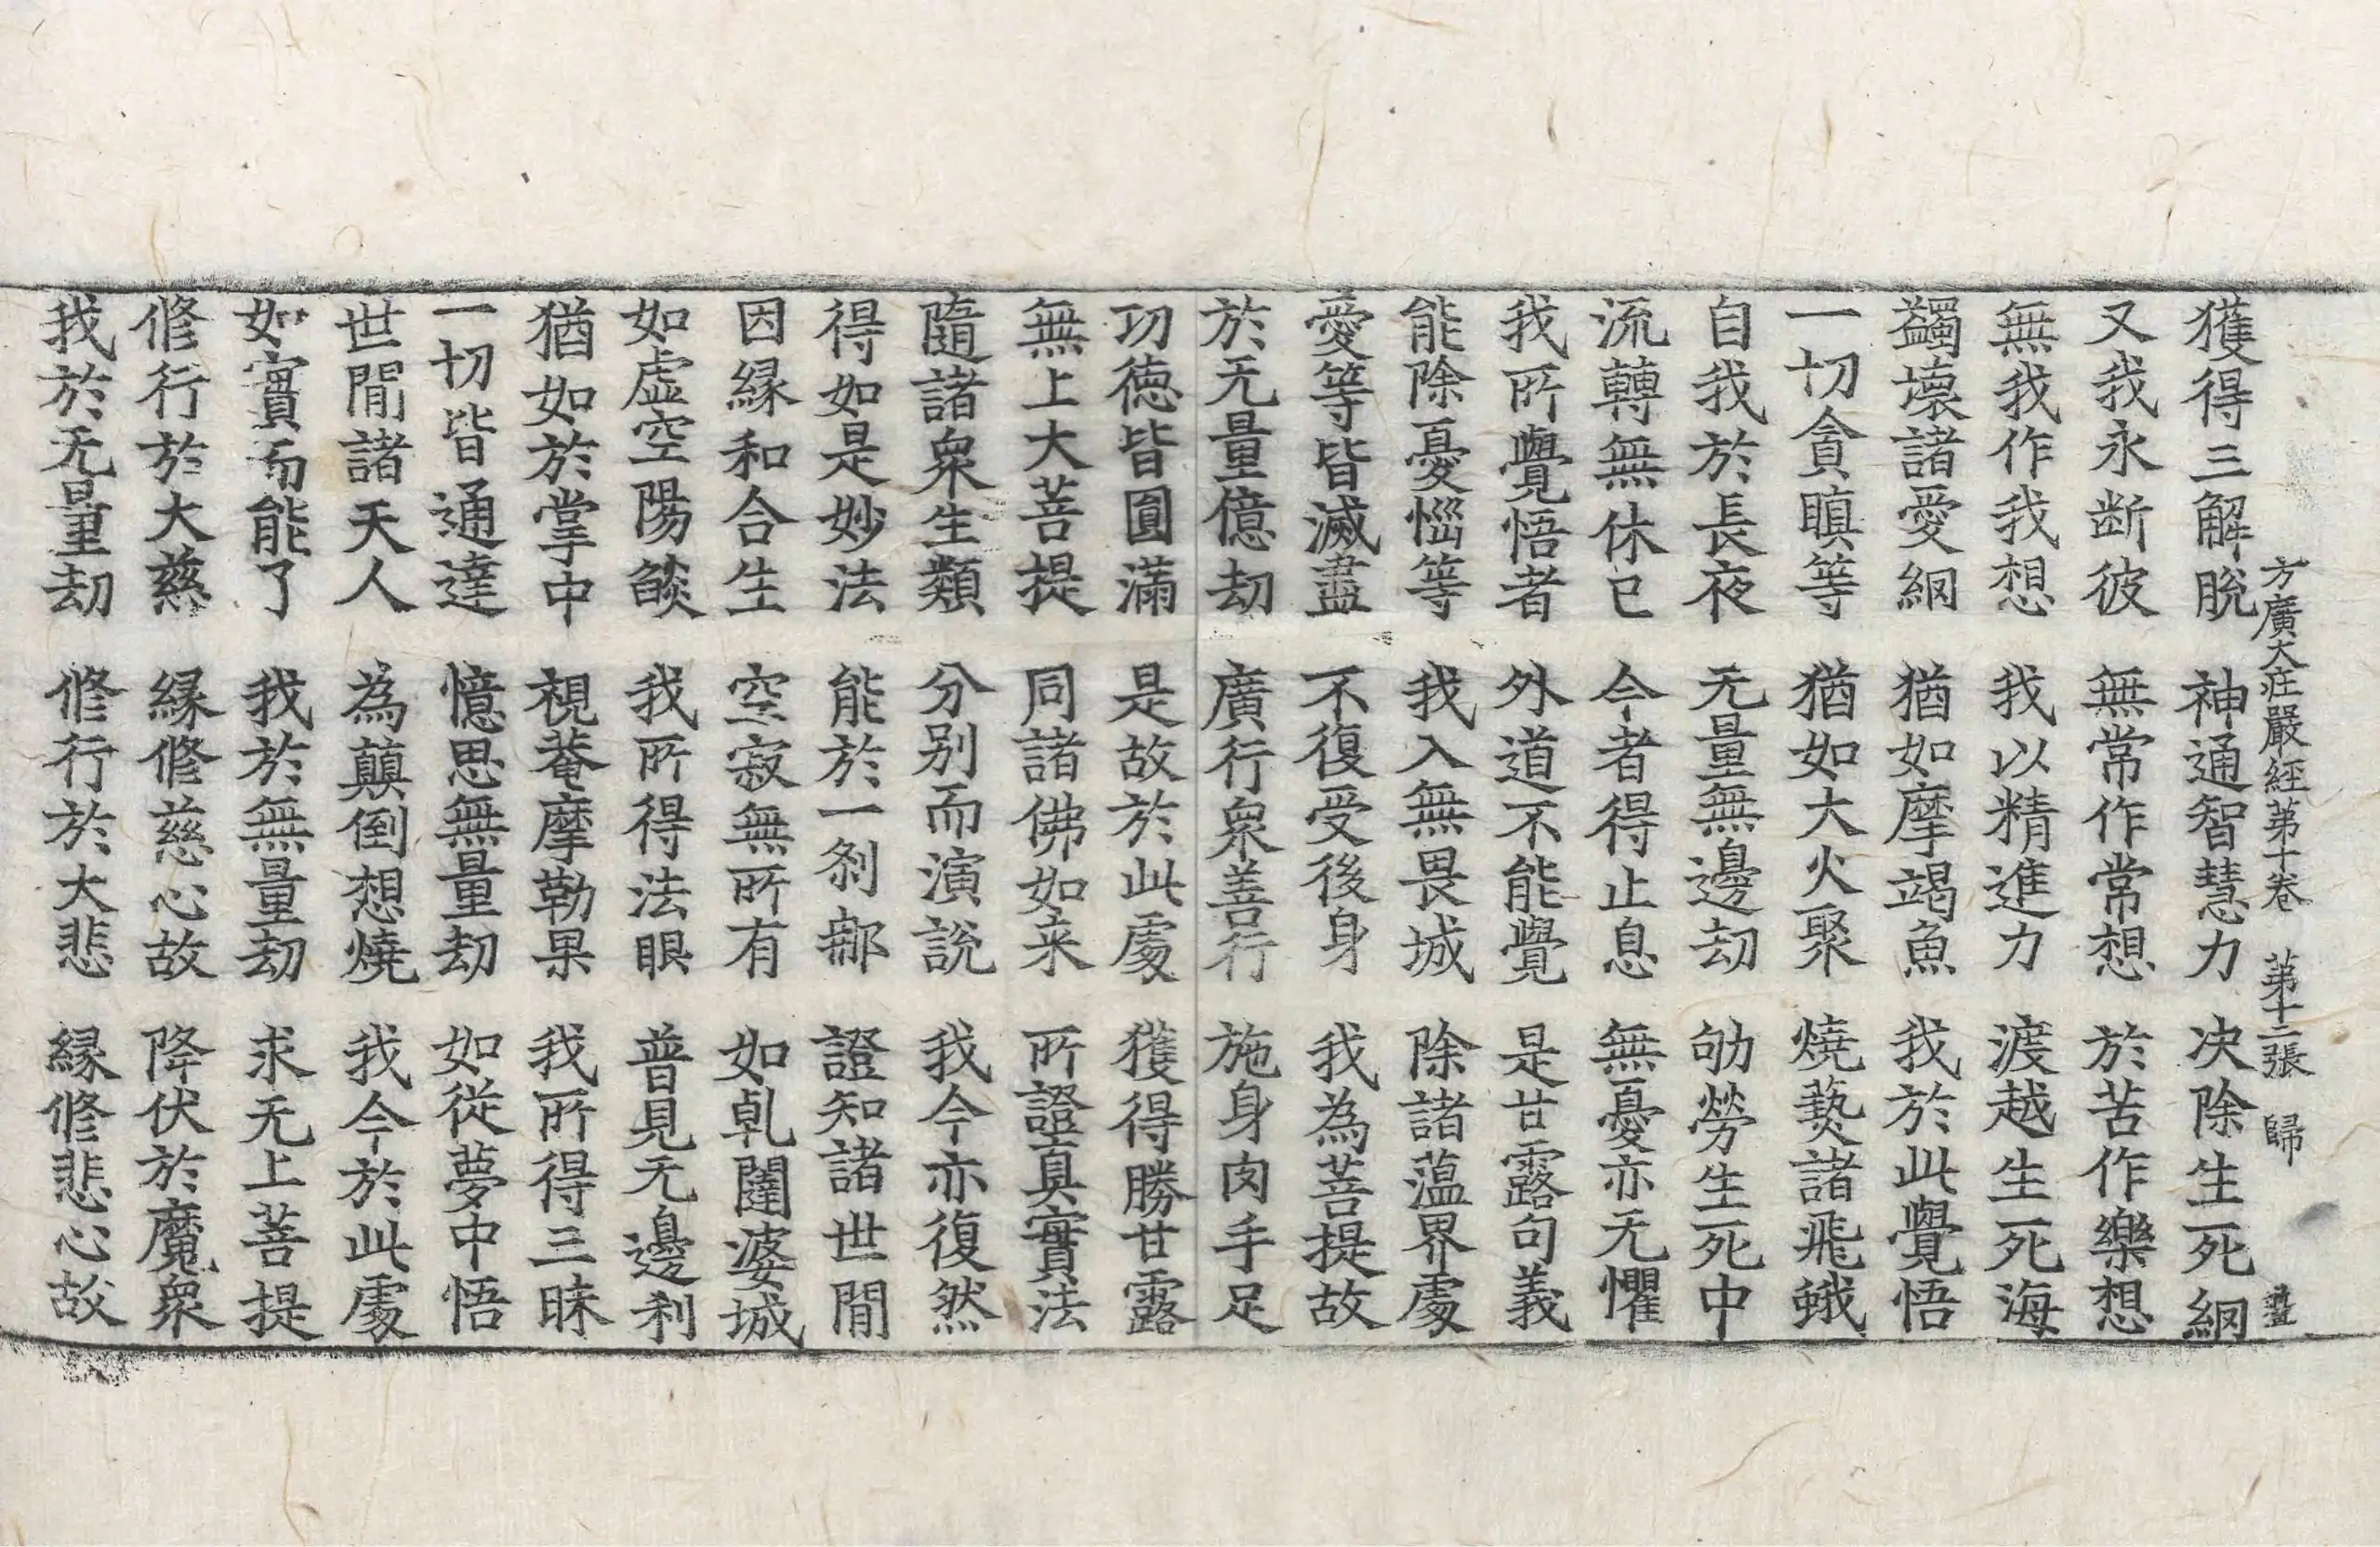 方廣大莊嚴經第十卷　第十二張　歸
獲得三解脫　神通智慧力　決除生死網
又我永断彼　無常作常想　於苦作樂想
無我作我想　我以精進力　渡越生死海
蠲壞諸愛網　猶如摩竭魚　我於此覺悟
一切貪瞋等　猶如大火聚　燒爇諸飛蛾
自我於長夜　无量無邊劫　劬勞生死中
流轉無休已　今者得止息　無憂亦无懼
我所覺悟者　外道不能覺　是甘露句義
能除憂惱等　我入無畏城　除諸蕰界處
愛等皆滅盡　不復受後身　我為菩提故
於无量億劫　廣行衆善行　施身肉手足
功徳皆圓滿　是故於此處　獲得勝甘露
無上大菩提　同諸佛如来　所證真實法
隨諸衆生類　分別而演說　我今亦復然
得如是妙法　能於一剎那　證知諸世間
因縁和合生　空寂無所有　如乹闥婆城
如虛空陽燄　我所得法眼　普見无邊刹
猶如於掌中　視菴摩勒果　我所得三昧
一切皆通達　憶思無量劫　如從夢中悟
世間諸天人　為顛倒想燒　我今於此處
如實而能了　我於無量劫　求无上菩提
修行於大慈　縁修慈心故　降伏於魔衆
我於无量劫　修行於大悲　縁修悲心故